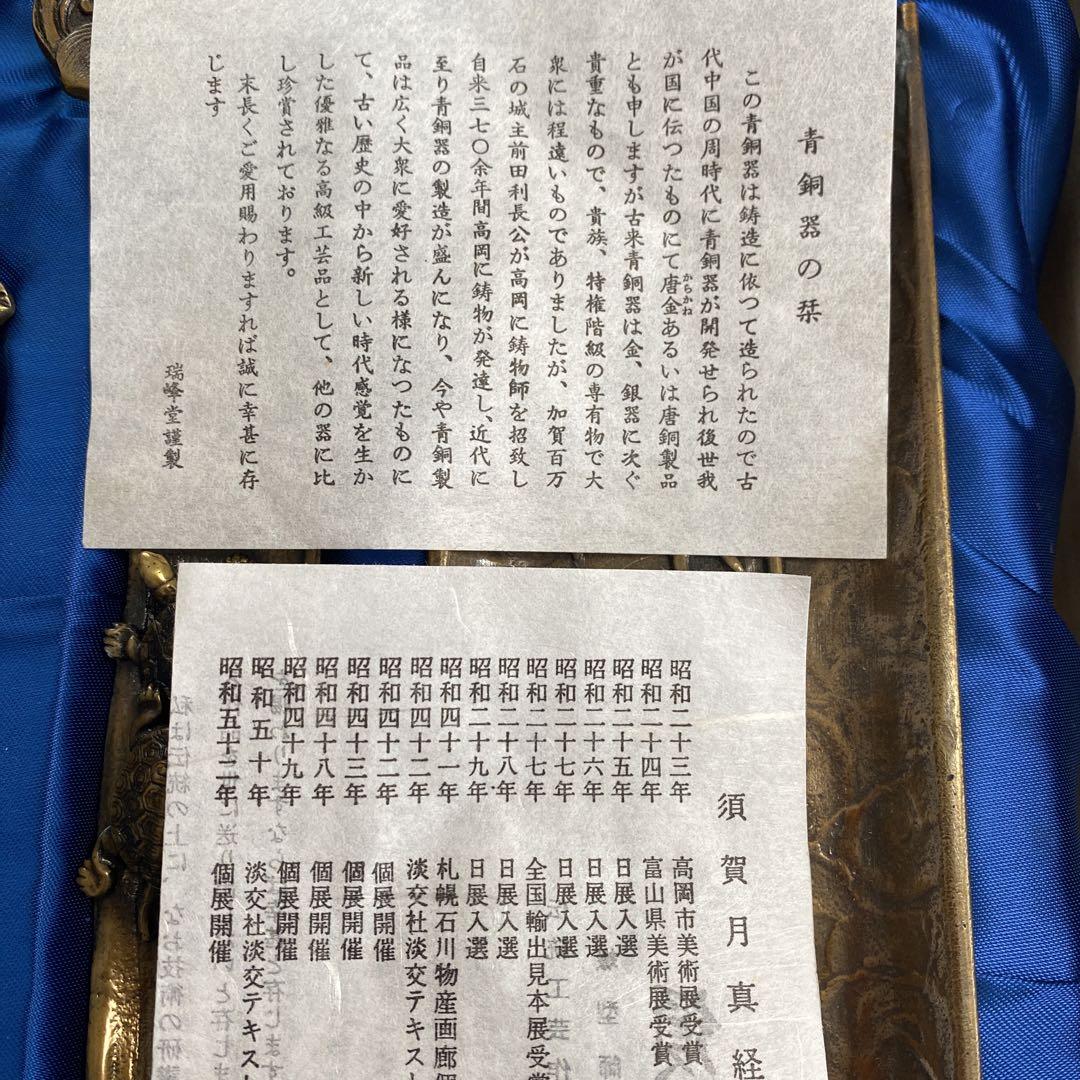 青銅器の栞
この青銅器は鋳造に依つて造られたので古
代中国の周時代に青銅器が開発せられ後世我
が国に伝つたものにて唐金あるいは唐銅製品
からかね
とも申しますが古来青銅器は金、銀器に次ぐ
貴重なもので、貴族、特権階級の専有物で大
衆には程遠いものでありましたが、加賀百万
石の城主前田利長公が高岡に鋳物師を招致し
自来三七〇余年間高岡に鋳物が発達し、近代に
至り青銅器の製造が盛んになり、今や青銅製
品は広く大衆に愛好される様になつたものに
て、古い歴史の中から新しい時代感覚を生か
した優雅なる高級工芸品として、他の器に比
し珍賞されております。
末長くご愛用賜わりますれば誠に幸甚に存
じます
瑞峰堂謹製
須賀月真経
昭和二十三年 高岡市美術展受賞
昭和二十四年 富山県美術展受賞
昭和二十五年 日展入選
昭和二十六年 日展入選
昭和二十七年 日展入選
昭和二十七年 全国輸出見本展受賞
昭和二十八年 日展入選
昭和二十九年 日展入選
昭和四十一年 札幌石川物産画廊個
昭和四十二年 淡交社淡交テキスト
昭和四十二年 個展開催
昭和四十三年 個展開催
昭和四十八年 個展開催
昭和四十九年 個展開催
昭和五十年 淡交社淡交テキスト
昭和五十二年 個展開催